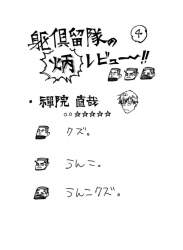 躯倶留隊の
④
炳レビュー!!
・禪院 直哉
☆☆☆☆☆☆☆
クズ。
うんこ。
うんこクズ。